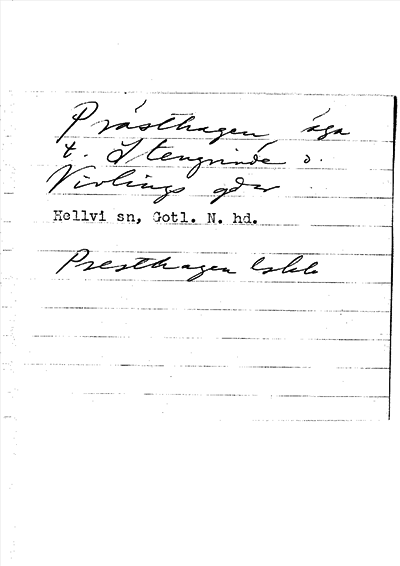 Prästhagen äga
t. Stengrinde o.
Vivlings gdar
Hellvi sn, Gotl. N. hd.
Presthagen